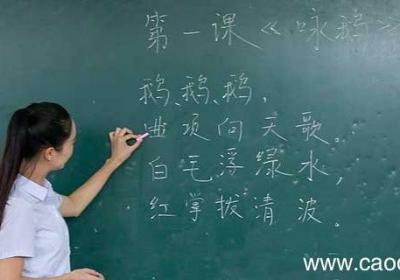 第一课《咏鹅》
鹅、鹅、鹅，
曲项向天歌。
白毛浮绿水，
红掌拔清波。
www.caoc